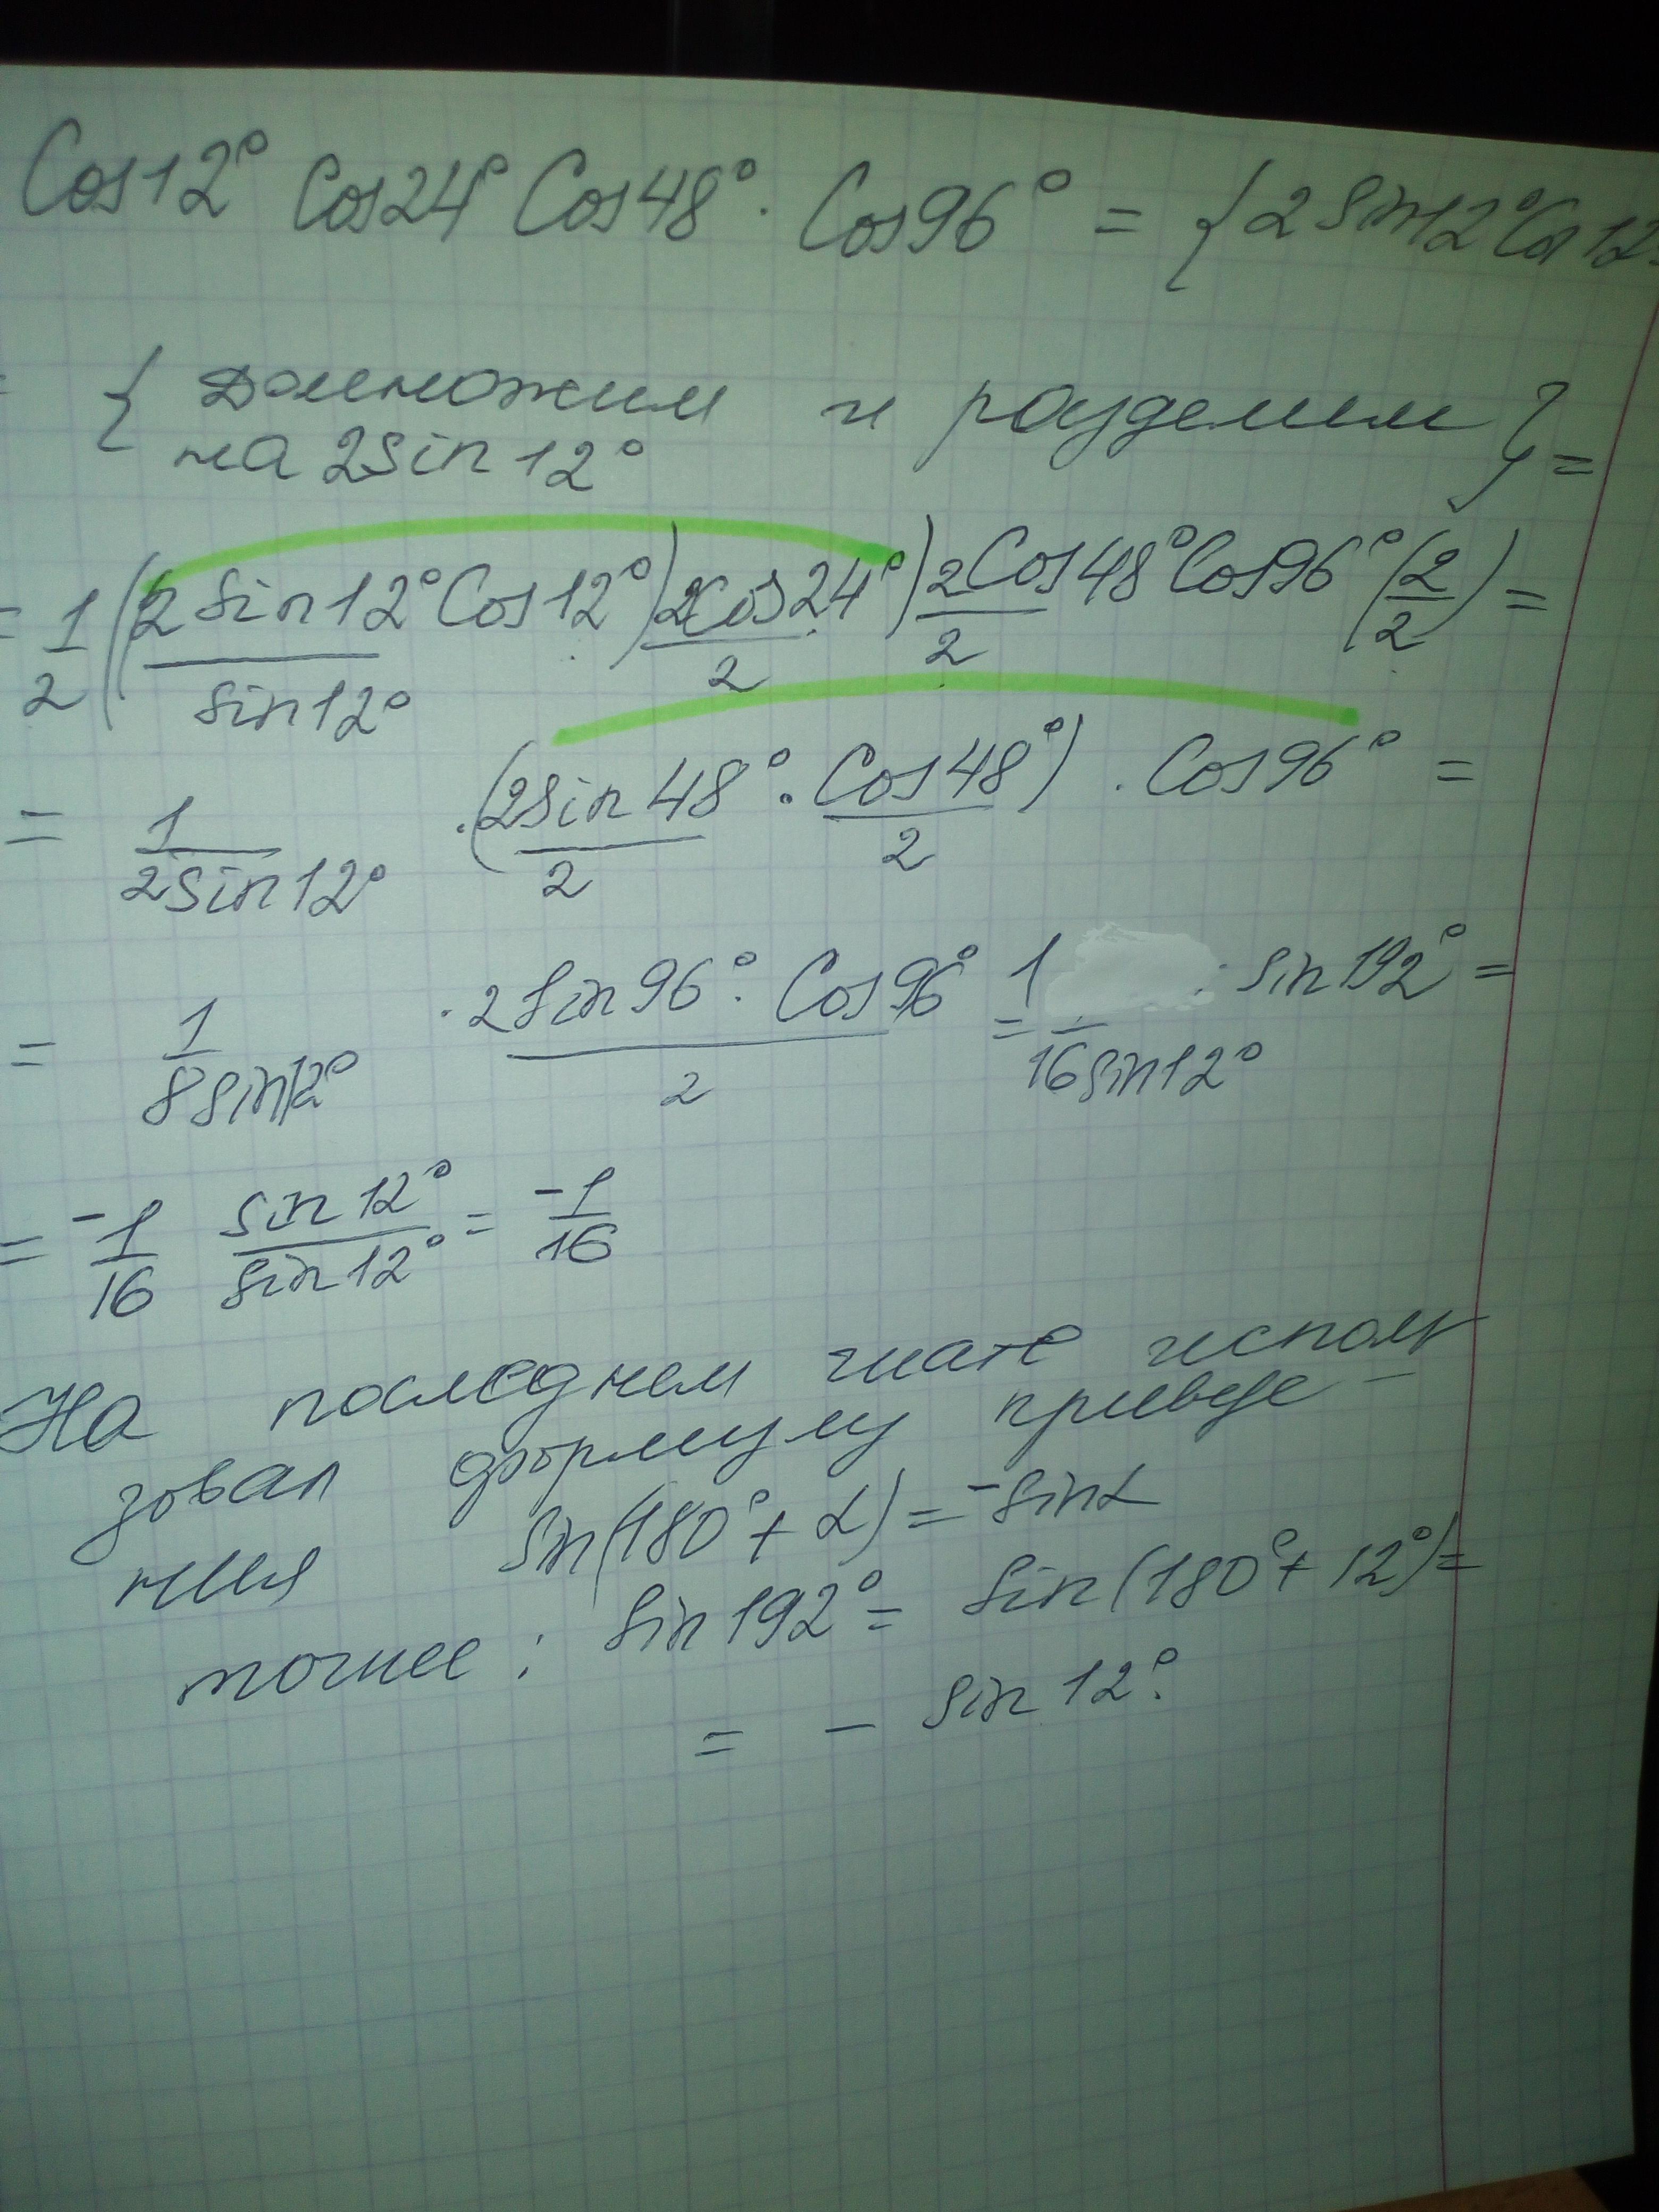 Cos12° Cos24° Cos48° · Cos96° = {2 Sin12° Cos 12
{ домножим и разделим
на 2sin 12° } =
= 1/2 ((2 Sin12° Cos12°)/sin12° 2Cos24°/2) 2Cos48°/2 Cos96° (2/2) =
= 1/2sin12° · (2Sin48°/2 · Cos48°/2) · Cos96° =
= 1/8sin12° · 2Sin96° · Cos96°/2 = 1/16sin12° · sin192° =
= -1/16 sin12°/sin12° = -1/16
На последнем шаге исполь
зовал формулу приведе-
ния sin(180° + α) = -sinα
точнее: sin192° = sin(180° + 12°) =
= - sin 12°.